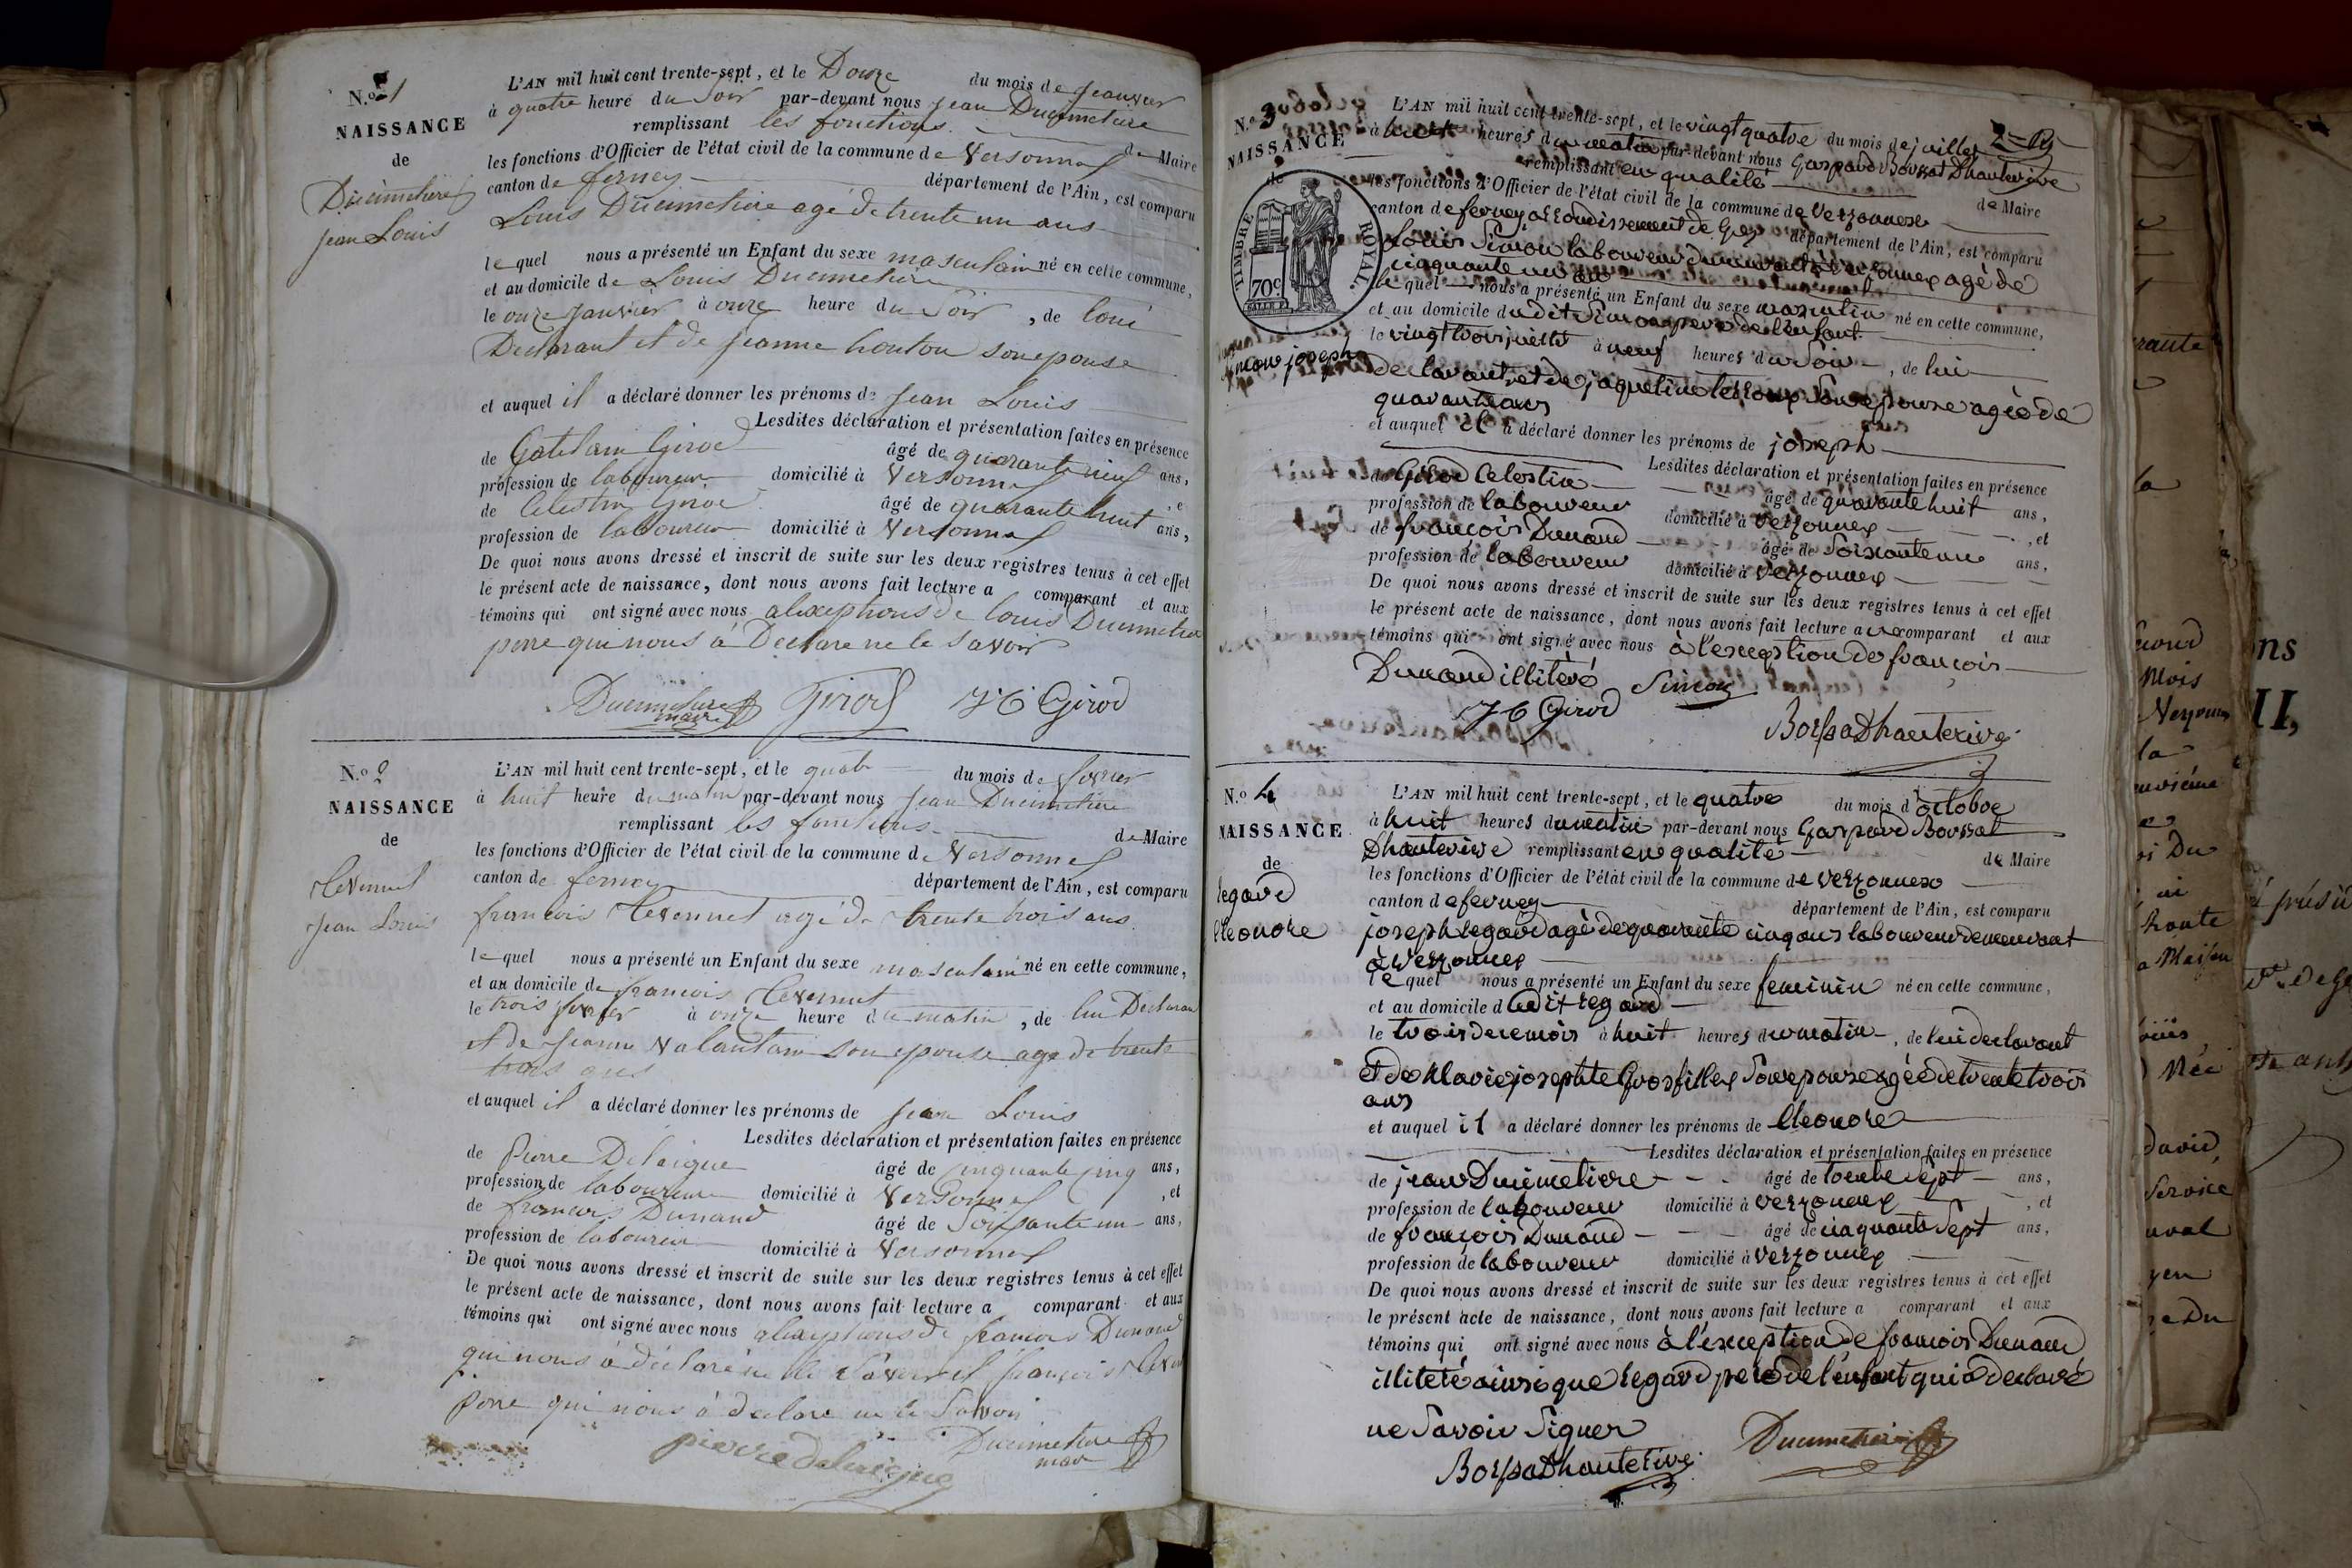 N.º 1
NAISSANCE
de
Ducimetiere
Jean Louis
L'AN mil huit cent trente-sept, et le Douze du mois de Jeanvier
à quatre heure du Soir par-devant nous Jean Ducimetiere
remplissant les fonctions de Maire
les fonctions d'Officier de l'état civil de la commune de Versonnex
canton de ferney département de l'Ain, est comparu
Louis Ducimetiere agé de trente un ans
le quel nous a présenté un Enfant du sexe masculain né en cette commune,
et au domicile de Louis Ducimetiere
le onze Janvier à onze heure du Soir, de loui
Declarant et de Jeanne houton son epouse
et auquel il a déclaré donner les prénoms de Jean Louis
Lesdites déclaration et présentation faites en présence
de Girod âgé de quarante neuf ans,
profession de laboureur domicilié à Versonnex, e
de Celestin Girod âgé de quarante huit ans,
profession de laboureur domicilié à Versonnex
De quoi nous avons dressé et inscrit de suite sur les deux registres tenus à cet effet
le présent acte de naissance, dont nous avons fait lecture a comparant et aux
témoins qui ont signé avec nous alexeptions de louis Ducimetier
perre qui nous à Declare ne le savoir
Ducimetiere maire Girod J C Girod
N.º 2
NAISSANCE
de
Jean Louis
L'AN mil huit cent trente-sept, et le quatr du mois de fevrier
à huit heure du matin par-devant nous Jean Ducimetiere
remplissant les fonctions de Maire
les fonctions d'Officier de l'état civil de la commune de Versonnex
canton de ferney département de l'Ain, est comparu
francois agé de trente trois ans
le quel nous a présenté un Enfant du sexe masculain né en cette commune,
et au domicile de francois
le trois fevrier à onze heure du matin, de lui Declaran
et de Jeanne Valantain son epouse age de trente
trois ans
et auquel il a déclaré donner les prénoms de Jean Louis
Lesdites déclaration et présentation faites en présence
de Pierre Delaigue âgé de cinquante cinq ans,
profession de laboureur domicilié à Versonnex, et
de francois Dunand âgé de Soissante un ans,
profession de laboureur domicilié à Versonnex
De quoi nous avons dressé et inscrit de suite sur les deux registres tenus à cet effet
le présent acte de naissance, dont nous avons fait lecture a comparant et aux
témoins qui ont signé avec nous alexeptions de francois Dunand
qui nous à déclaré ne le Savoir et francois
perre qui nous à declare ne le Savoir
pierre delaigue Ducimetiere
N.º 3
NAISSANCE
de
TIMBRE ROYAL
70c
Simon joseph
L'AN mil huit cent trente-sept, et le vingt quatre du mois de juillet
à heures du matin par-devant nous Gaspard Borssat Dhauterive
remplissant en qualité de Maire
les fonctions d'Officier de l'état civil de la commune de Versonnex
canton de ferney arrondissement de Gex département de l'Ain, est comparu
Louis Simon laboureur demeurant à Versonnex agé de
cinquante un ans
le quel nous a présenté un Enfant du sexe masculin né en cette commune,
et au domicile dudit Simon pere de l'enfant
le vingt trois juillet à neuf heures du Soir, de lui
declarant et de jaqueline Son epouse agée de
quarante ans
et auquel il a déclaré donner les prénoms de joseph
Lesdites déclaration et présentation faites en présence
de Girod Celestin âgé de quarante huit ans,
profession de laboureur domicilié à Versonnex, et
de françois Dunand âgé de Soixante un ans,
profession de laboureur domicilié à Versonnex
De quoi nous avons dressé et inscrit de suite sur les deux registres tenus à cet effet
le présent acte de naissance, dont nous avons fait lecture au comparant et aux
témoins qui ont signé avec nous à l'exception de françois
Dunand illitéré Simon
J C Girod
Borssat Dhauterive
N.º 4
NAISSANCE
de
regard
eleonore
L'AN mil huit cent trente-sept, et le quatre du mois d'octobre
à huit heures du matin par-devant nous Gaspard Borssat
Dhauterive remplissant en qualité de Maire
les fonctions d'Officier de l'état civil de la commune de Versonnex
canton de ferney département de l'Ain, est comparu
joseph regard agé de quarante cinq ans laboureur demeurant
à Versonnex
le quel nous a présenté un Enfant du sexe feminin né en cette commune,
et au domicile dudit regard
le trois de ce mois à huit heures du matin, de lui declarant
et de Marie josephte Grosfilley Son epouse agée de trente trois
ans
et auquel il a déclaré donner les prénoms de Eleonore
Lesdites déclaration et présentation faites en présence
de jean Ducimetiere âgé de trente Sept ans,
profession de laboureur domicilié à Versonnex, et
de françois Dunand âgé de cinquante Sept ans,
profession de laboureur domicilié à Versonnex
De quoi nous avons dressé et inscrit de suite sur les deux registres tenus à cet effet
le présent acte de naissance, dont nous avons fait lecture a comparant et aux
témoins qui ont signé avec nous à l'exception de francois Dunand
illiteré ainsi que regard pere de l'enfant qui a declaré
ne Savoir Signer
Borssat Dhauterive Ducimetiere